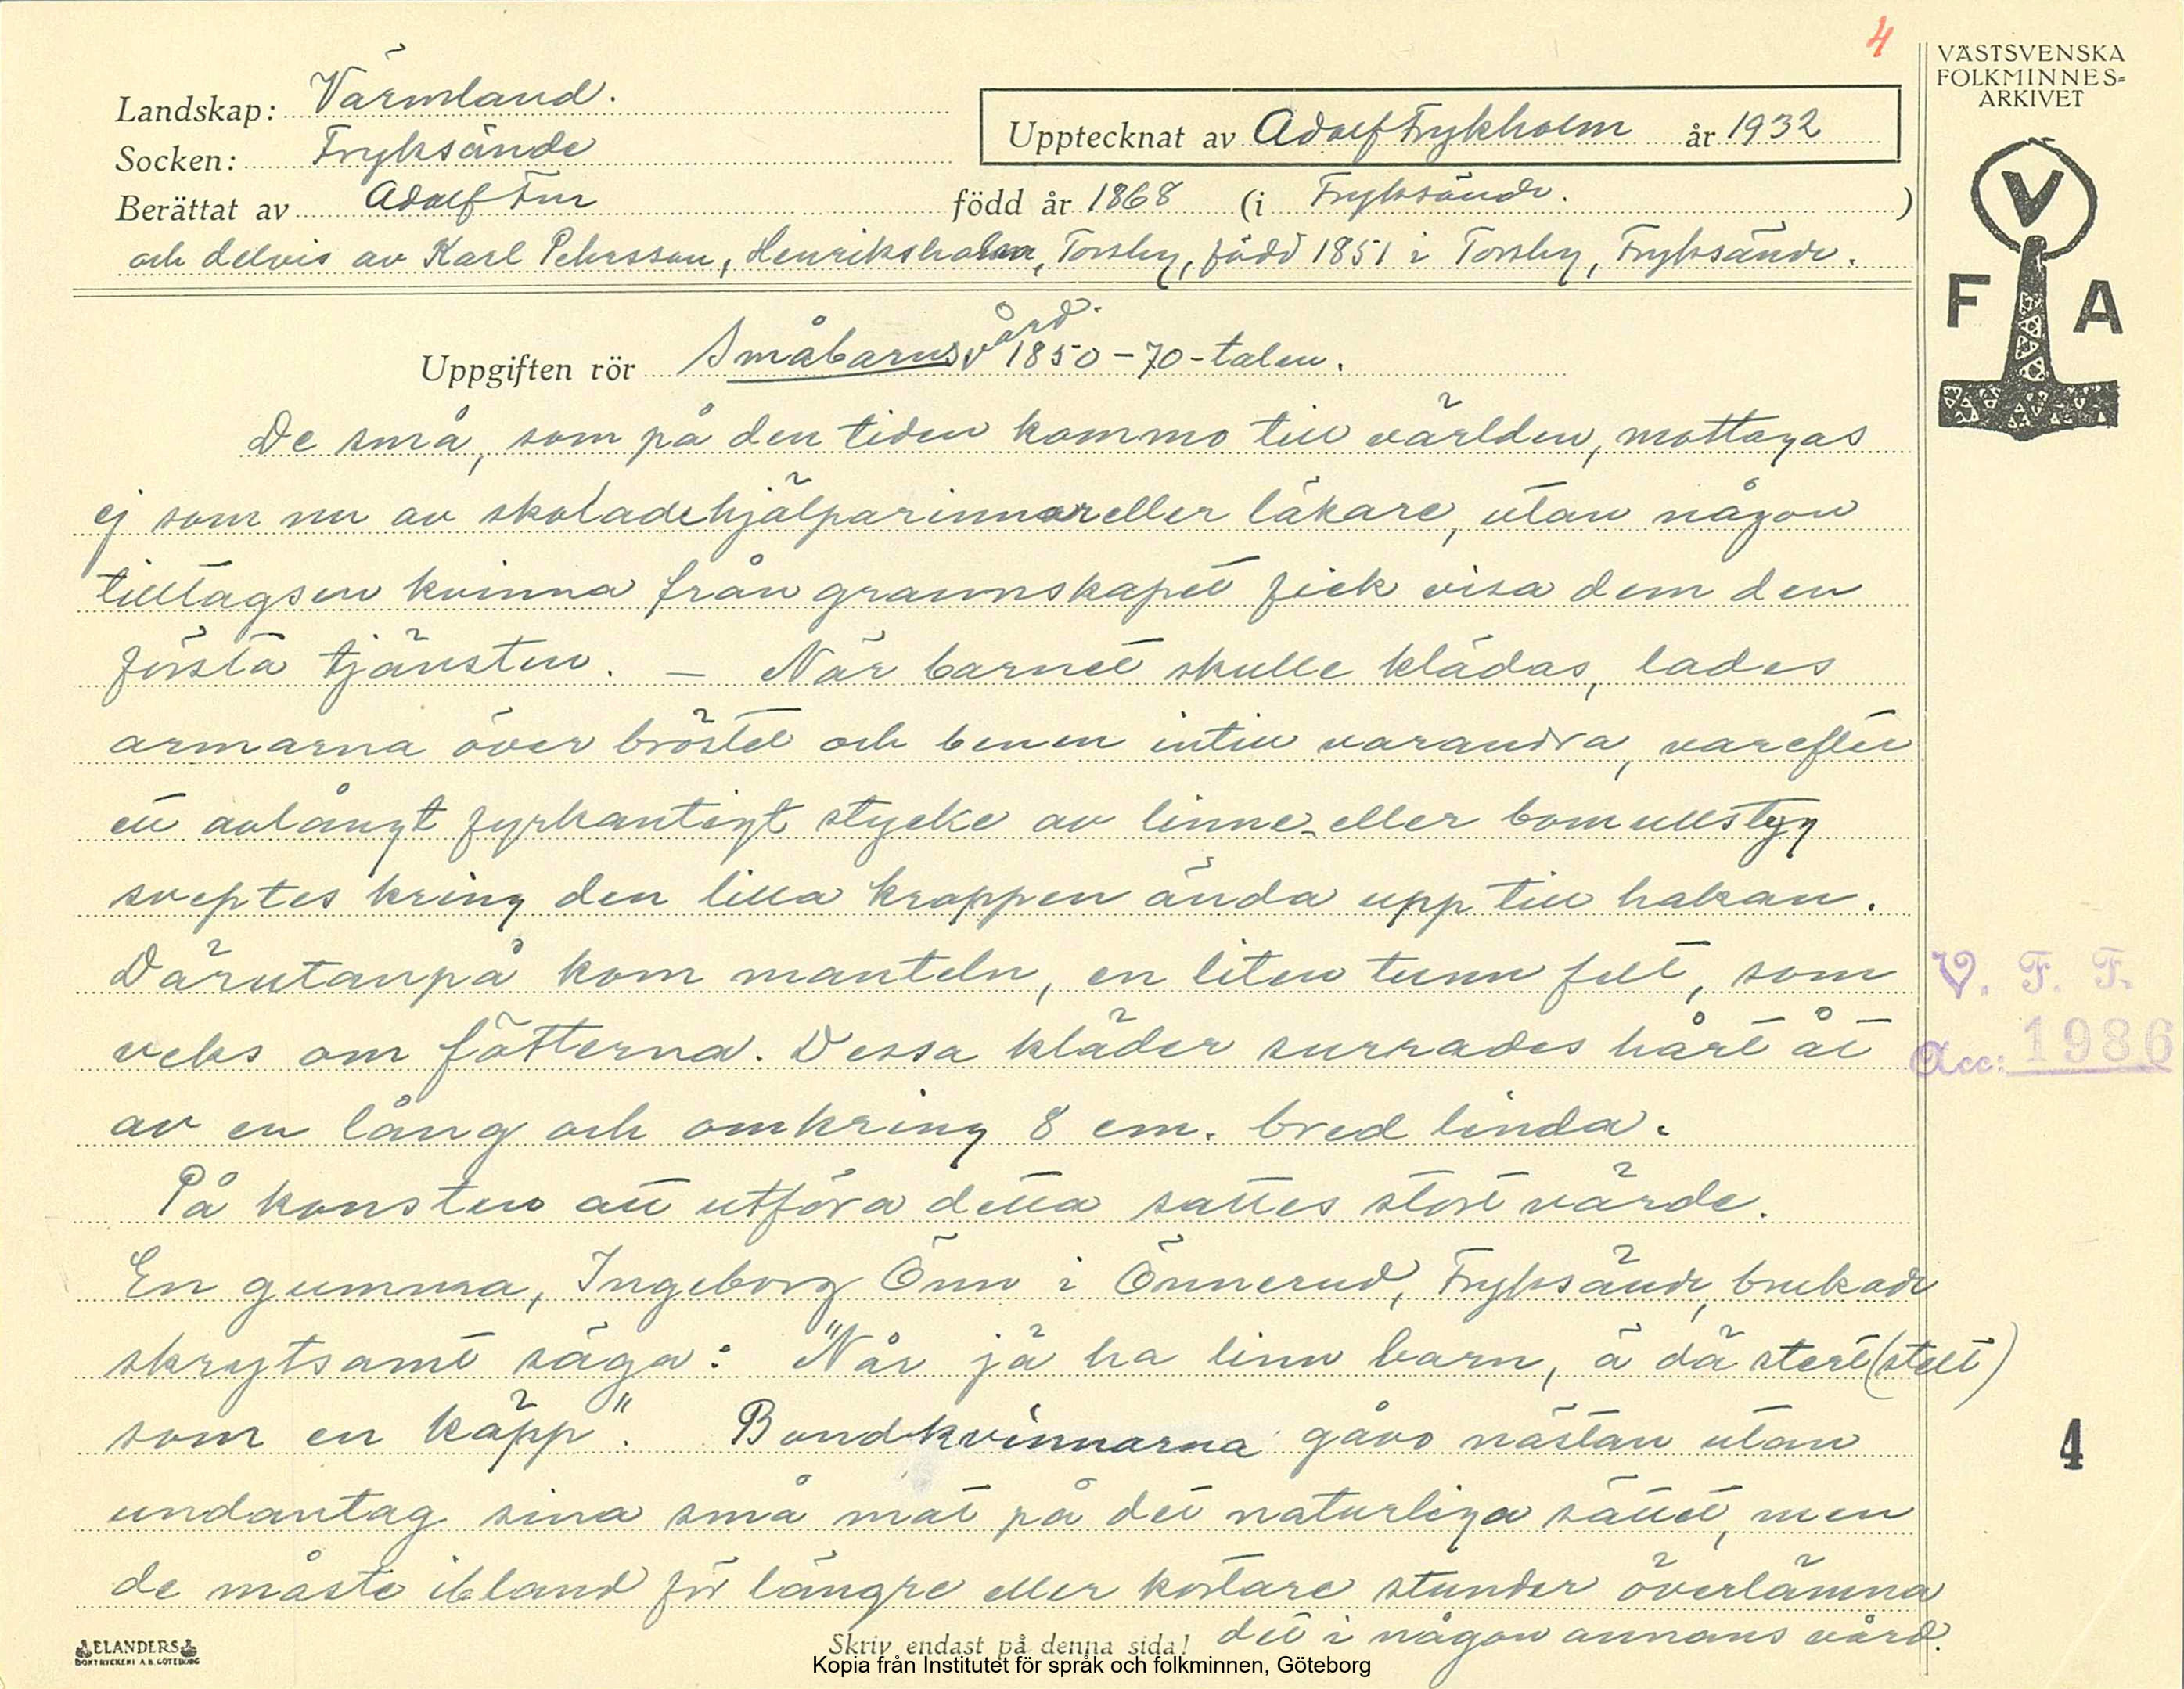 4
VÄSTSVENSKA
FOLKMINNES-
ARKIVET
Landskap: Värmland.
Upptecknat av Adolf Frykholm år 1932
Socken: Fryksände
Berättat av Adolf Fur född år 1868 (i Fryksände. )
och delvis av Karl Pehrsson, Henriksholm, Torsby, född 1851 i Torsby, Fryksände.
V
F A
Uppgiften rör Småbarnsvård. 1850-70-talen.
De små, som på den tiden kommo till världen, mottagas
ej som nu av skolade hjälparinnor eller läkare, utan någon
tilltagsen kvinna från grannskapet fick visa dem den
första tjänsten. – När barnet skulle klädas, lades
armarna över bröstet och benen intill varandra, varefter
ett avlångt fyrkantigt stycke av linne- eller bomullstyg
sveptes kring den lilla kroppen ända upp till hakan.
Därutanpå kom manteln, en liten tunn filt, som
veks om fötterna. Dessa kläder surrades hårt åt
av en lång och omkring 8 cm. bred linda.
V. F. F.
Acc: 1986
På konsten att utföra detta sattes stort värde.
En gumma, Ingeborg Önn i Önnerud, Fryksände, brukade
skrytsamt säga: "Når jä ha linn barn, ä dä stert (stelt)
som en käpp". Bondkvinnarna gåvo nästan utan
undantag sina små mat på det naturliga sättet, men
de måste ibland för längre eller kortare stunder överlämna
det i någon annans vård.
4
ELANDERS
BOKTRYCKERI A.B. GÖTEBORG
Skriv endast på denna sida!
Kopia från Institutet för språk och folkminnen, Göteborg